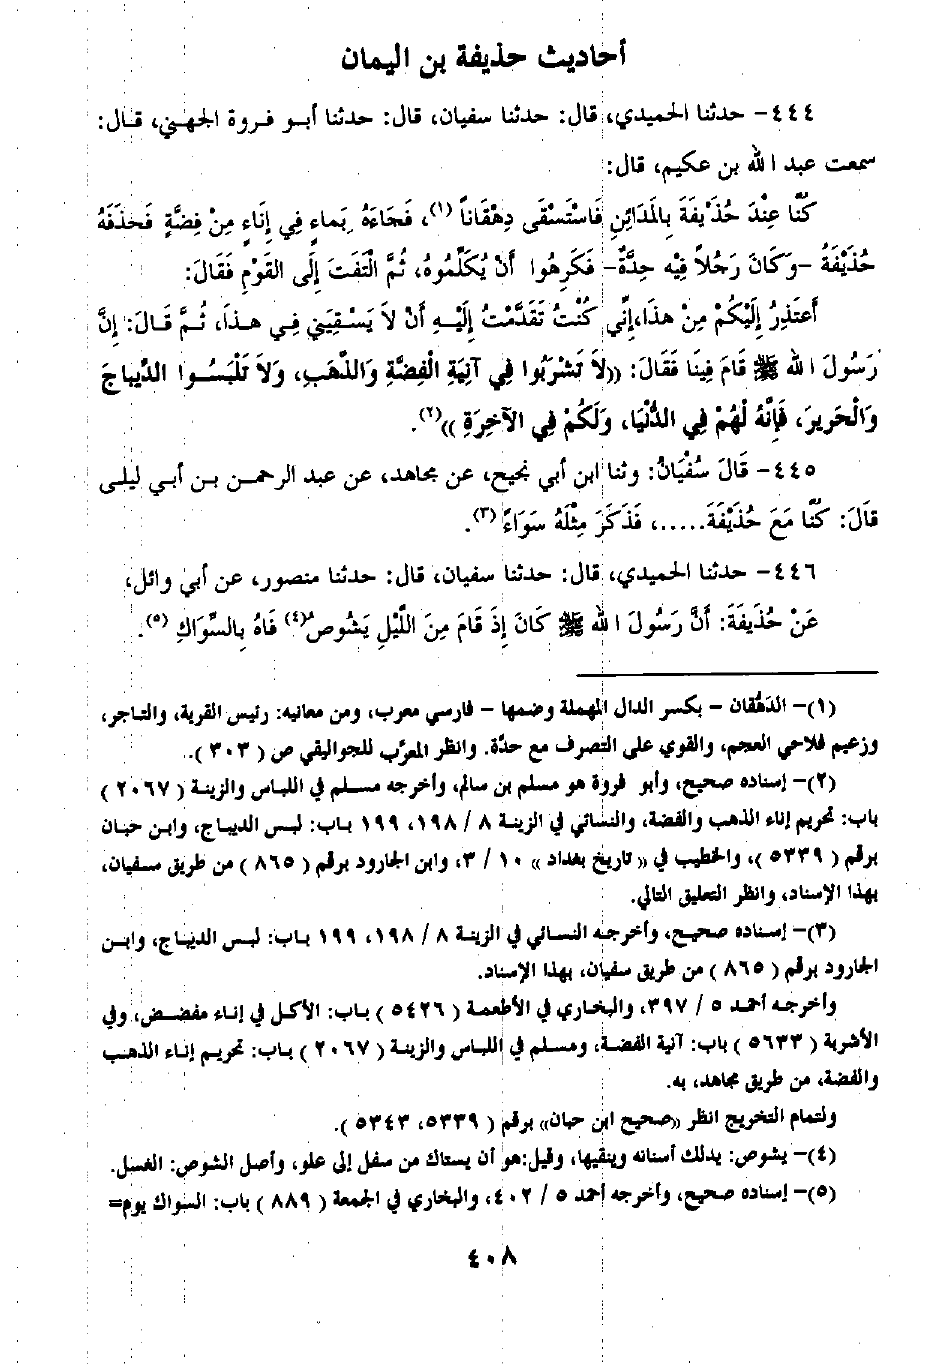 أحاديث حذيفة بن اليمان
٤٤٤- حدثنا الحميدي، قال: حدثنا سفيان، قال: حدثنا أبو فروة الجهني، قال:
سمعت عبد الله بن عكيم، قال:
كُنَّا عِنْدَ حُذَيْفَةَ بِالمَدَائِنِ فَاسْتَسْقَى دِهْقَاناً (١)، فَجَاءَهُ بِمَاءٍ فِي إِنَاءٍ مِنْ فِضَّةٍ فَحَذَفَهُ
حُذَيْفَةُ -وَكَانَ رَجُلاً فِيْه حِدَّةٌ- فَكَرِهُوا أَنْ يُكَلِّمُوهُ، ثُمَّ الْتَفَتَ إِلَى القَوْمِ فَقَالَ:
أَعتَذِرُ إِلَيْكُمْ مِنْ هذَا،إِنِّي كُنْتُ تَقَدَّمْتُ إِلَيْهِ أَنْ لاَ يَسْقِيَنِي فِي هذَا، ثُمَّ قَالَ: إِنَّ
رَسُولَ الله ﷺ قَامَ فِينَا فَقَالَ: ((لاَ تَشْرَبُوا فِي آنِيَةِ الْفِضَّةِ وَالذَّهَبِ، وَلاَ تَلْبَسُوا الدِّيباجَ
وَالْحَرِيرَ، فَإِنَّهُ لَهُمْ فِي الدُّنْيَا، وَلَكُمْ فِي الآخِرَةِ ))(٢).
٤٤٥- قَالَ سُفْيَانُ: وثنا ابن أبي نجيح، عن مجاهد، عن عبد الرحمن بن أبي ليلى
قَالَ: كُنَّا مَعَ حُذَيْفَةَ.....، فَذَكَرَ مِثْلَهُ سَوَاءً (٣).
٤٤٦- حدثنا الحميدي، قال: حدثنا سفيان، قال: حدثنا منصور، عن أبي وائل،
عَنْ حُذَيفَةَ: أَنَّ رَسُولَ الله ﷺ كَانَ إِذ قَامَ مِنَ اللَّيْلِ يَشُوصُ(٤) فَاهُ بِالسِّوَاكِ (٥).
(١)- الدهقان - بكسر الدال المهملة وضمها - فارسي معرب، ومن معانيه: رئيس القرية، والتاجر،
وزعيم فلاحي العجم، والقوي على التصرف مع حدّة. وانظر المعرَّب للجواليقي ص ( ٣٠٣ ).
(٢)- إسناده صحيح، وأبو فروة هو مسلم بن سالم، وأخرجه مسلم في اللباس والزينة ( ٢٠٦٧ )
باب: تحريم إناء الذهب والفضة، والنسائي في الزينة ٨ / ١٩٨، ١٩٩ باب: لبس الديباج، وابن حبان
برقم ( ٥٣٣٩ )، والخطيب في (( تاريخ بغداد )) ١٠ / ٣، وابن الجارود برقم ( ٨٦٥ ) من طريق سفيان،
بهذا الإسناد، وانظر التعليق التالي.
(٣)- إسناده صحيح، وأخرجه النسائي في الزينة ٨ / ١٩٨، ١٩٩ باب: لبس الديباج، وابن
الجارود برقم ( ٨٦٥ ) من طريق سفيان، بهذا الإسناد.
وأخرجه أحمد ٥ / ٣٩٧، والبخاري في الأطعمة ( ٥٤٢٦ ) باب: الأكل في إناء مفضض، وفي
الأشربة ( ٥٦٣٣ ) باب: آنية الفضة، ومسلم في اللباس والزينة ( ٢٠٦٧ ) باب: تحريم إناء الذهب
والفضة، من طريق مجاهد، به.
ولتمام التخريج انظر ((صحيح ابن حبان)) برقم ( ٥٣٣٩، ٥٣٤٣ ).
(٤)- يشوص: يدلك أسنانه وينقيها، وقيل:هو أن يستاك من سفل إلى علو، وأصل الشوص: الغسل.
(٥)- إسناده صحيح، وأخرجه أحمد ٥ / ٤٠٢، والبخاري في الجمعة ( ٨٨٩ ) باب: السواك يوم=
٤٠٨